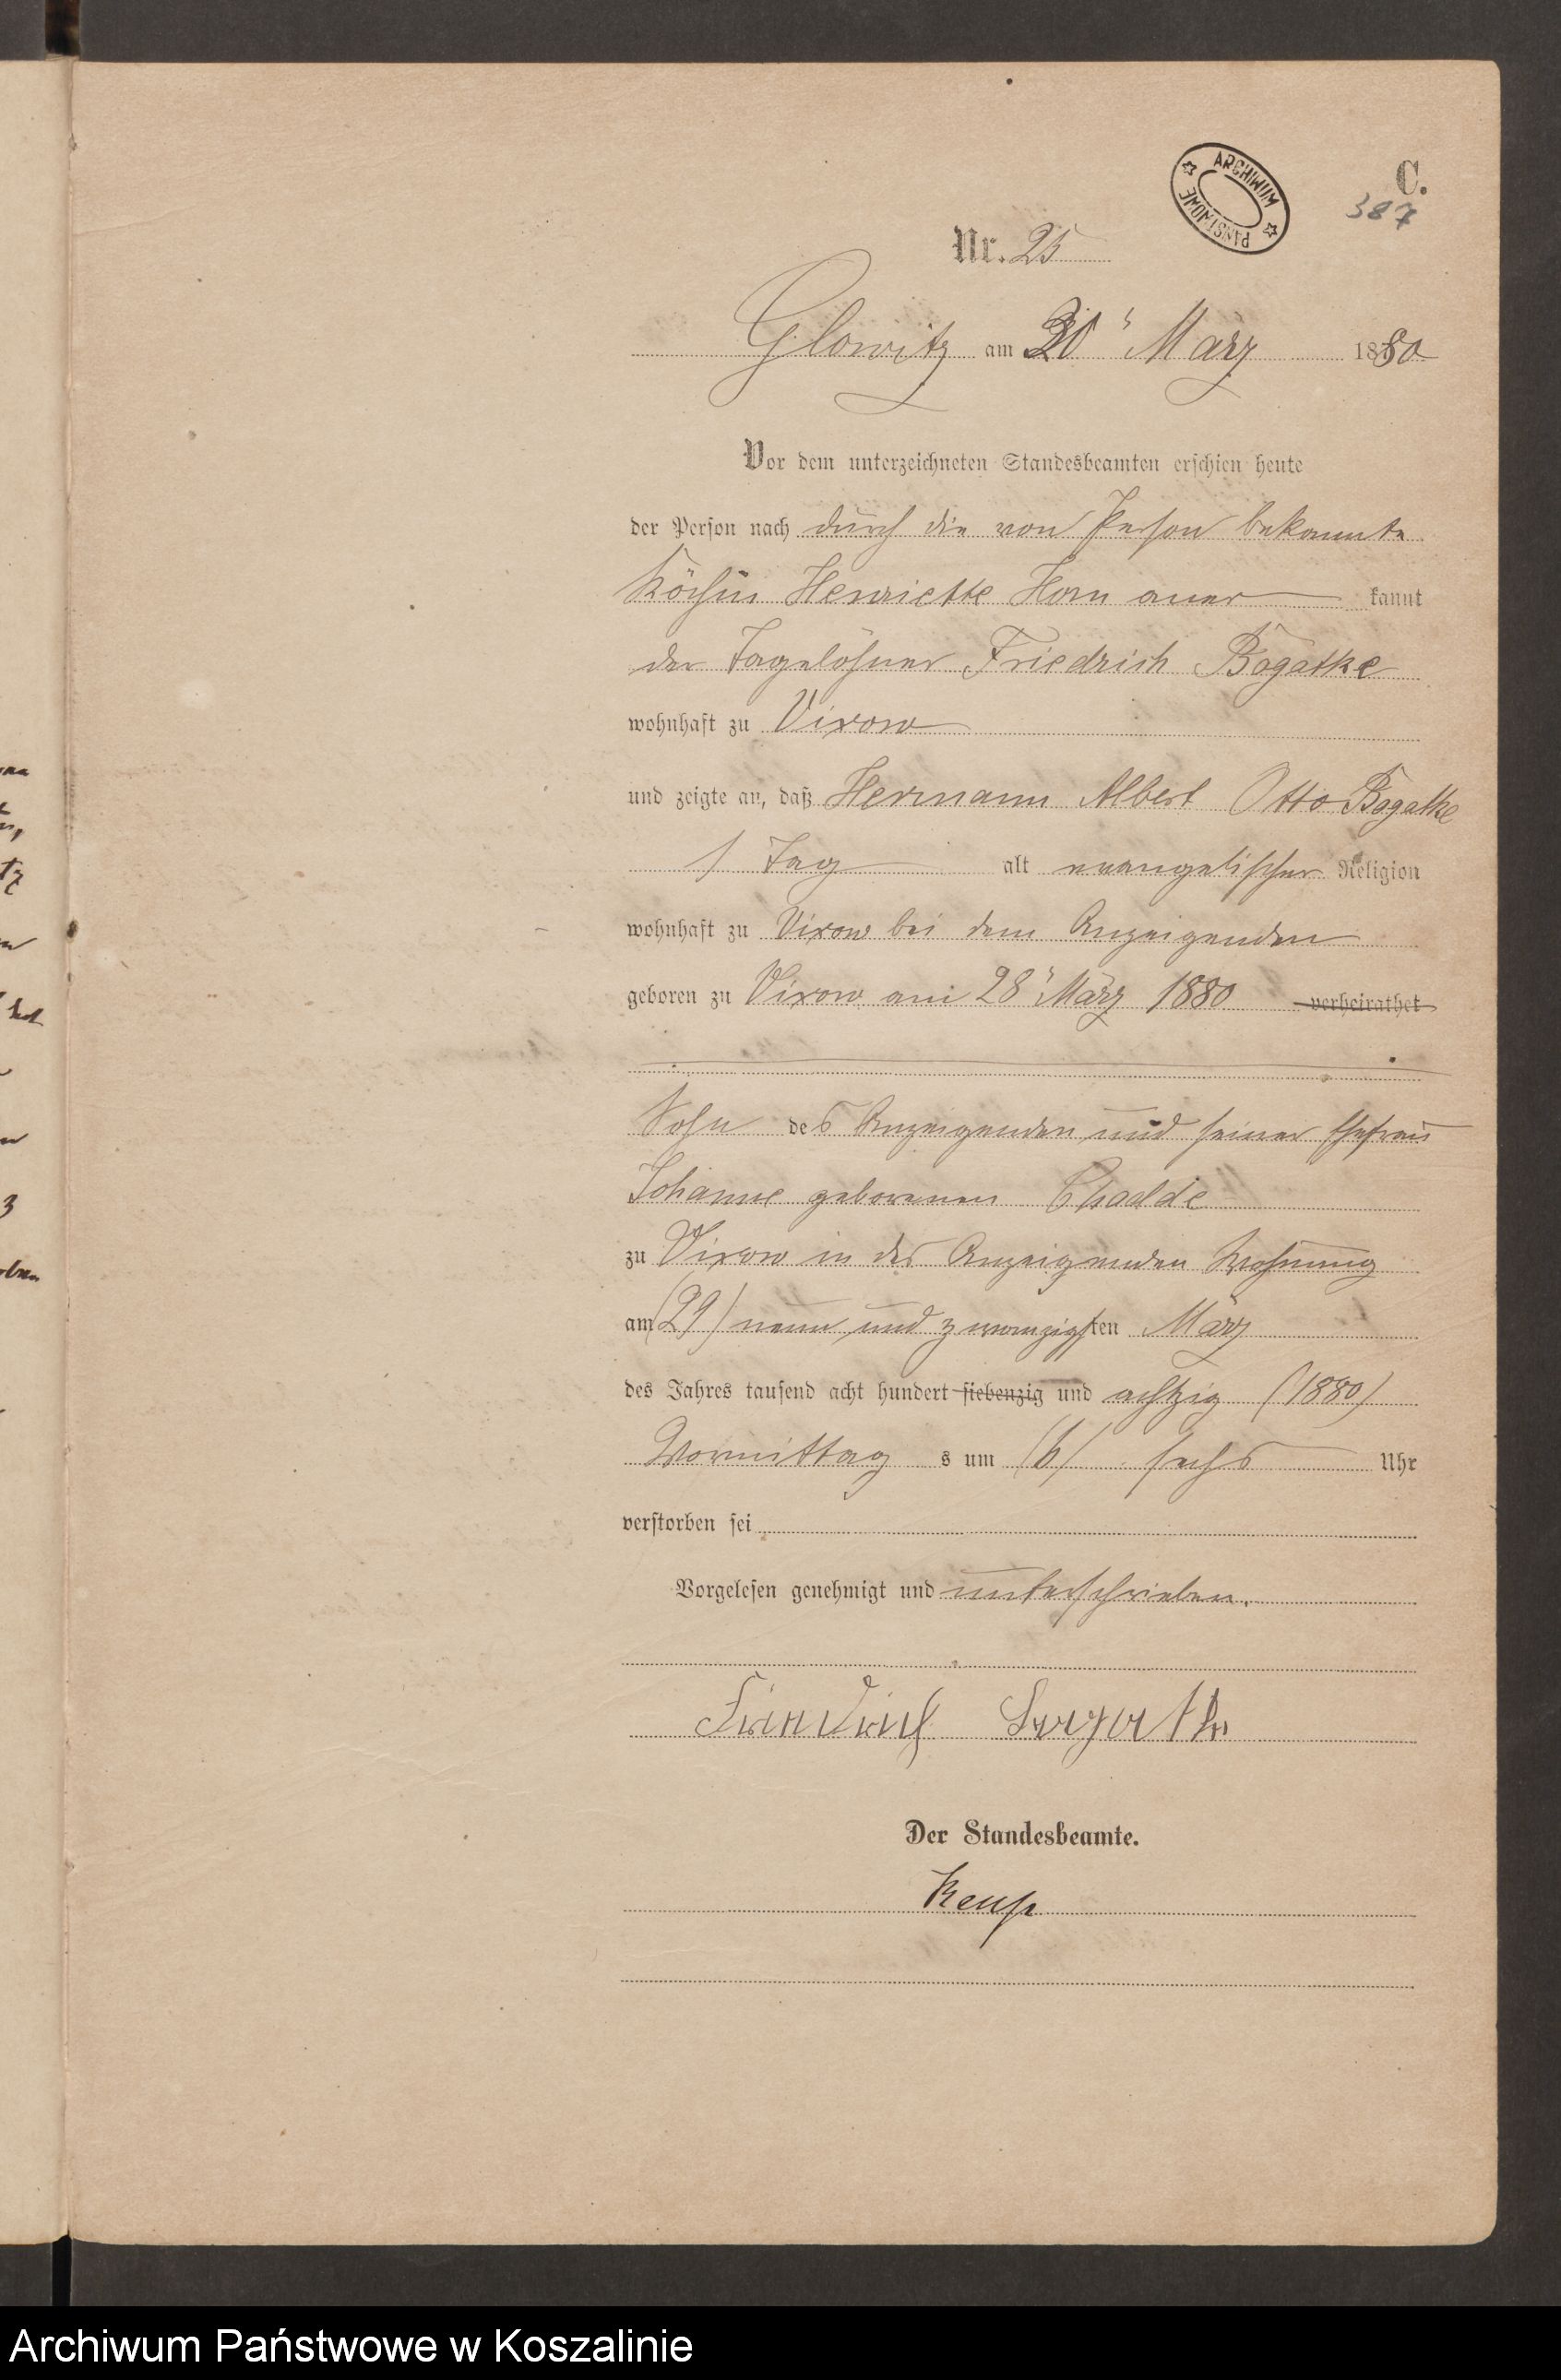 ARCHIWUM PAŃSTWOWE
C.
387
Nr. 25
Glowitz am 30' März 1880
Vor dem unterzeichneten Standesbeamten erschien heute
der Person nach durch die von Person bekannte
Köchin Henriette Horn aner kannt
der Tagelöhner Friedrich Bogatke
wohnhaft zu Vixow
und zeigte an, daß Hermann Albert Otto Bogatke
1 Tag alt evangelischer Religion
wohnhaft zu Vixow bei dem Anzeigenden
geboren zu Vixow am 28' März 1880 verheirathet
Sohn des Anzeigenden und seiner Ehefrau
Johanne geborenen
zu Vixow in des Anzeigenden Wohnung
am (29) neun und zwanzigsten März
des Jahres tausend acht hundert siebenzig und achtzig (1880)
Vormittag s um (6) sechs Uhr
verstorben sei
Vorgelesen genehmigt und unterschrieben.
Friedrich
Der Standesbeamte.
Archiwum Państwowe w Koszalinie